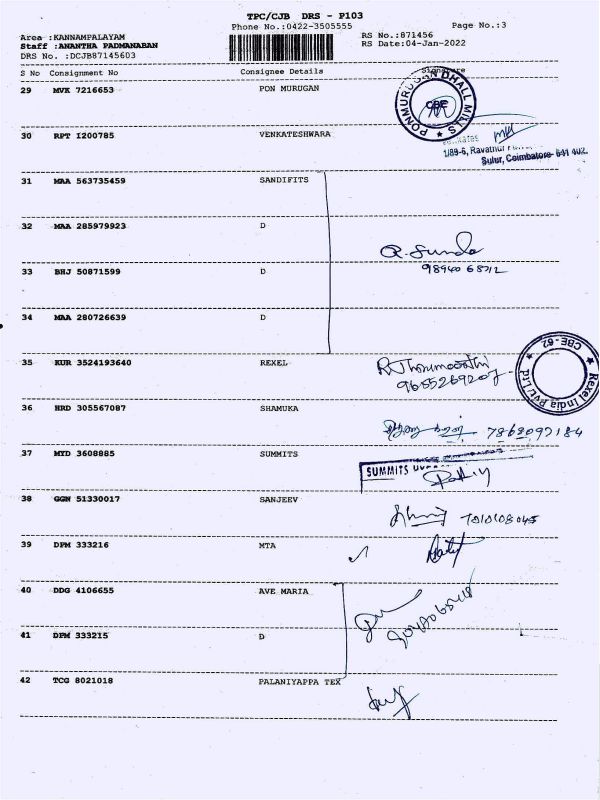 TPC/CJB DRS - P103
Phone No.:0422-3505555
Page No.:3
Area :KANNAMPALAYAM
RS No.:871456
Staff :ANANTHA PADMANABAN
RS Date:04-Jan-2022
DRS No. :DCJB87145603
S No Consignment No Consignee Details Signature
29 MVK 7216653 PON MURUGAN
PONMURUGAN DHALL MILLS
CBE
30 RPT 1200785 VENKATESHWARA
1/89-6, Ravathur
Sulur, Coimbatore- 641 402.
31 MAA 563735459 SANDIFITS
32 MAA 285979923 D
R. Sunda
33 BHJ 50871599 D
34 MAA 280726639 D
35 KUR 3524193640 REXEL
9655269207
Rexel India Pvt Ltd
CBE-62
36 HRD 305567087 SHAMUKA
7868097184
37 MYD 3608885 SUMMITS
SUMMITS
38 GGN 51330017 SANJEEV
39 DPM 333216 MTA
40 DDG 4106655 AVE MARIA
41 DPM 333215 D
42 TCG 8021018 PALANIYAPPA TEX